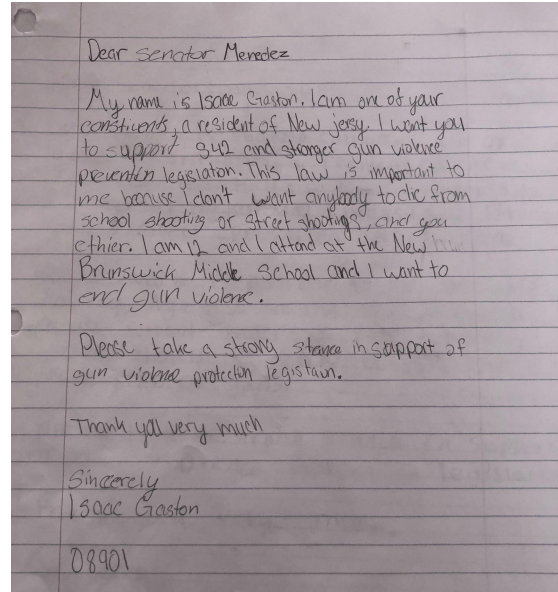 Dear Senator Menedez
My name is Isaac Gaston. I am one of your
constivents, a resident of New jersy. I want you
to support S42 and stronger gun violence
preventin legislation. This law is important to
me because I don't want anybody to die from
school shooting or street shootings, and you
ethier. I am 12 and I attend at the New
Brunswick Middle School and I want to
end gun violence.
Please take a strong stance in support of
gun violence protection legistaun.
Thank you very much
Sincerely
Isaac Gaston
08901